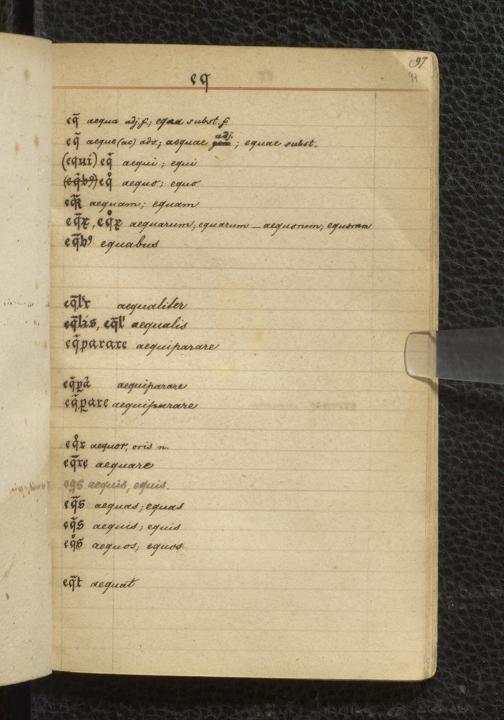 97
94
eq
eq̄ aequa adj. f.; equa subst. f.
eq̄ aeque (ae) adv.; aequae adj.; equae subst.
(equi) eq̊ aequi; equi
eq̊ aequo; equo
eq̄ aequam; equam
eq̄ꝝ, eq̊ꝝ aequarum, equarum — aequorum, equorum
eq̄bꝰ equabus
eq̄lr̄ aequaliter
eq̄lis, eq̄l' aequalis
eq̄parare aequiparare
eq̄pa̅ aequiparare
eq̄pare aequiparare
eq̊r aequor, oris n.
eq̄re aequare
eqs aequis, equis.
eq̄s aequas; equas
eq̄s aequis; equis
eq̊s aequos; equos
eq̄t aequat